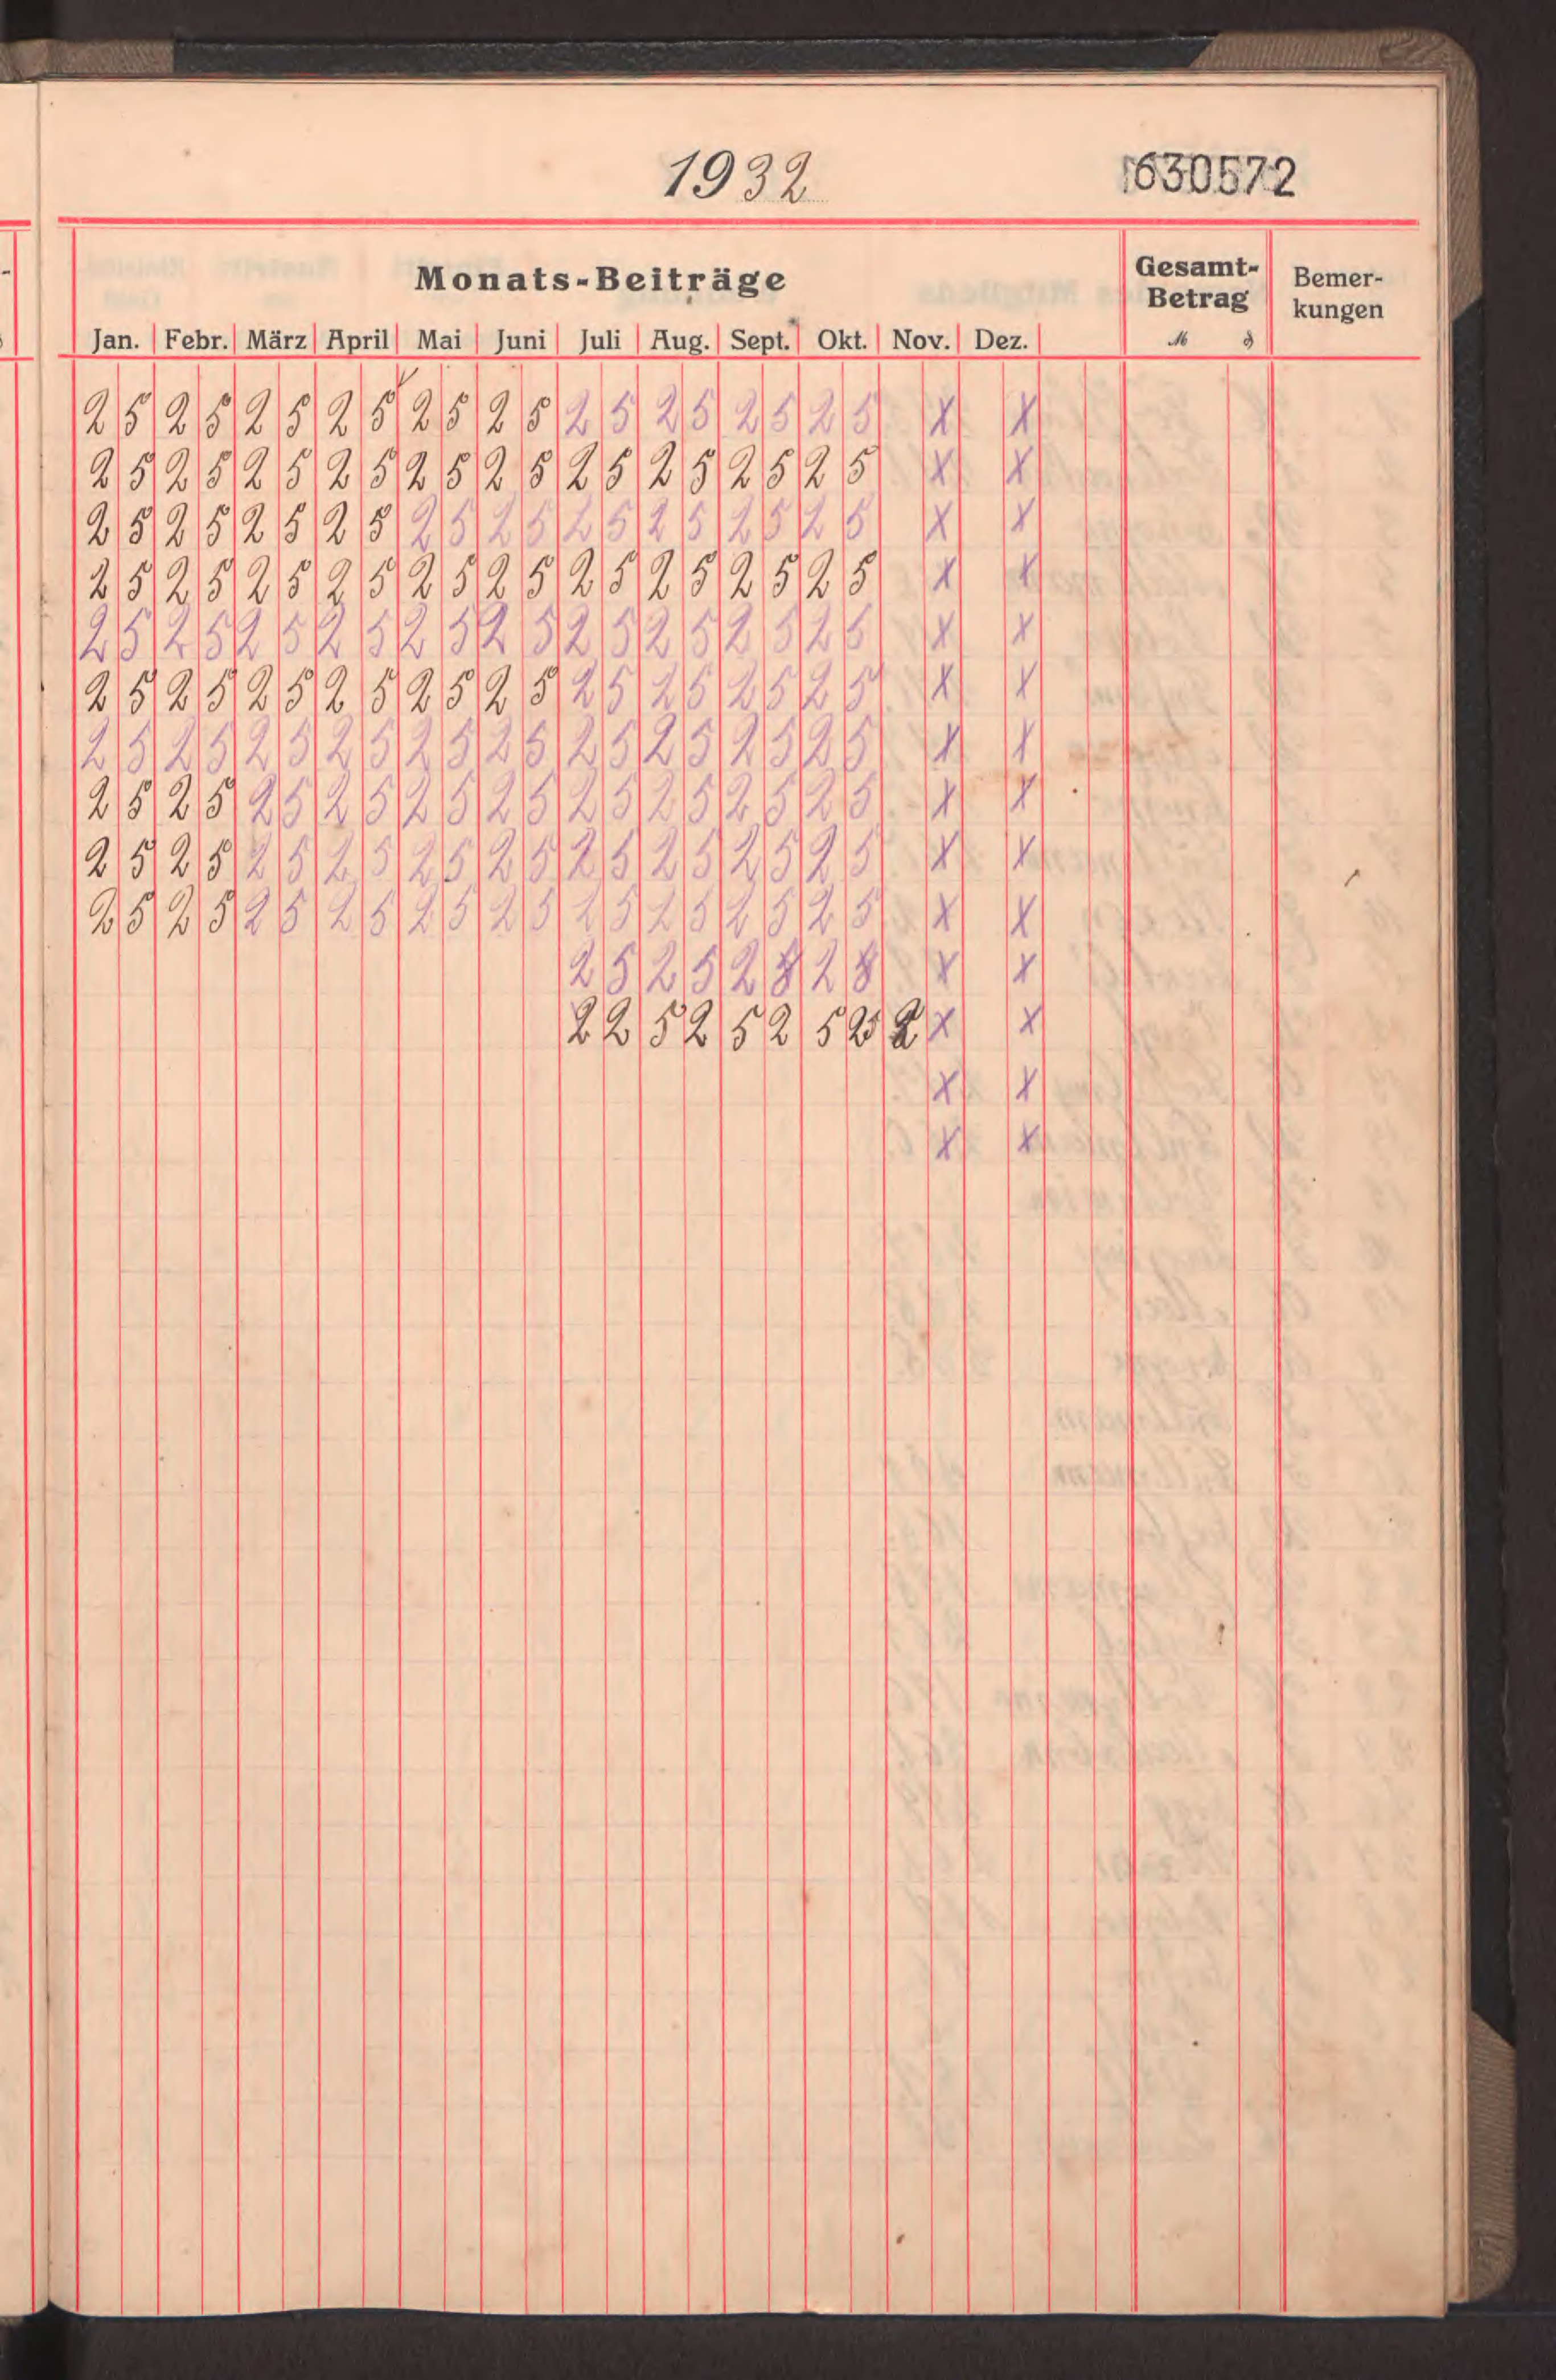 1932
1630572
Monats-Beiträge Gesamt-Betrag Bemer-kungen
Jan. Febr. März April Mai Juni Juli Aug. Sept. Okt. Nov. Dez. M ₰
25 25 25 25 25 25 25 25 25 25 x x
25 25 25 25 25 25 25 25 25 25 x x
25 25 25 25 25 25 25 25 25 25 x x
25 25 25 25 25 25 25 25 25 25 x x
25 25 25 25 25 25 25 25 25 25 x x
25 25 25 25 25 25 25 25 25 25 x x
25 25 25 25 25 25 25 25 25 25 x x
25 25 25 25 25 25 25 25 25 25 x x
25 25 25 25 25 25 25 25 25 25 x x
25 25 25 25 25 25 25 25 25 25 x x
25 25 2 2 x x
2 2 5 2 5 2 5 2 x x
x x
x x